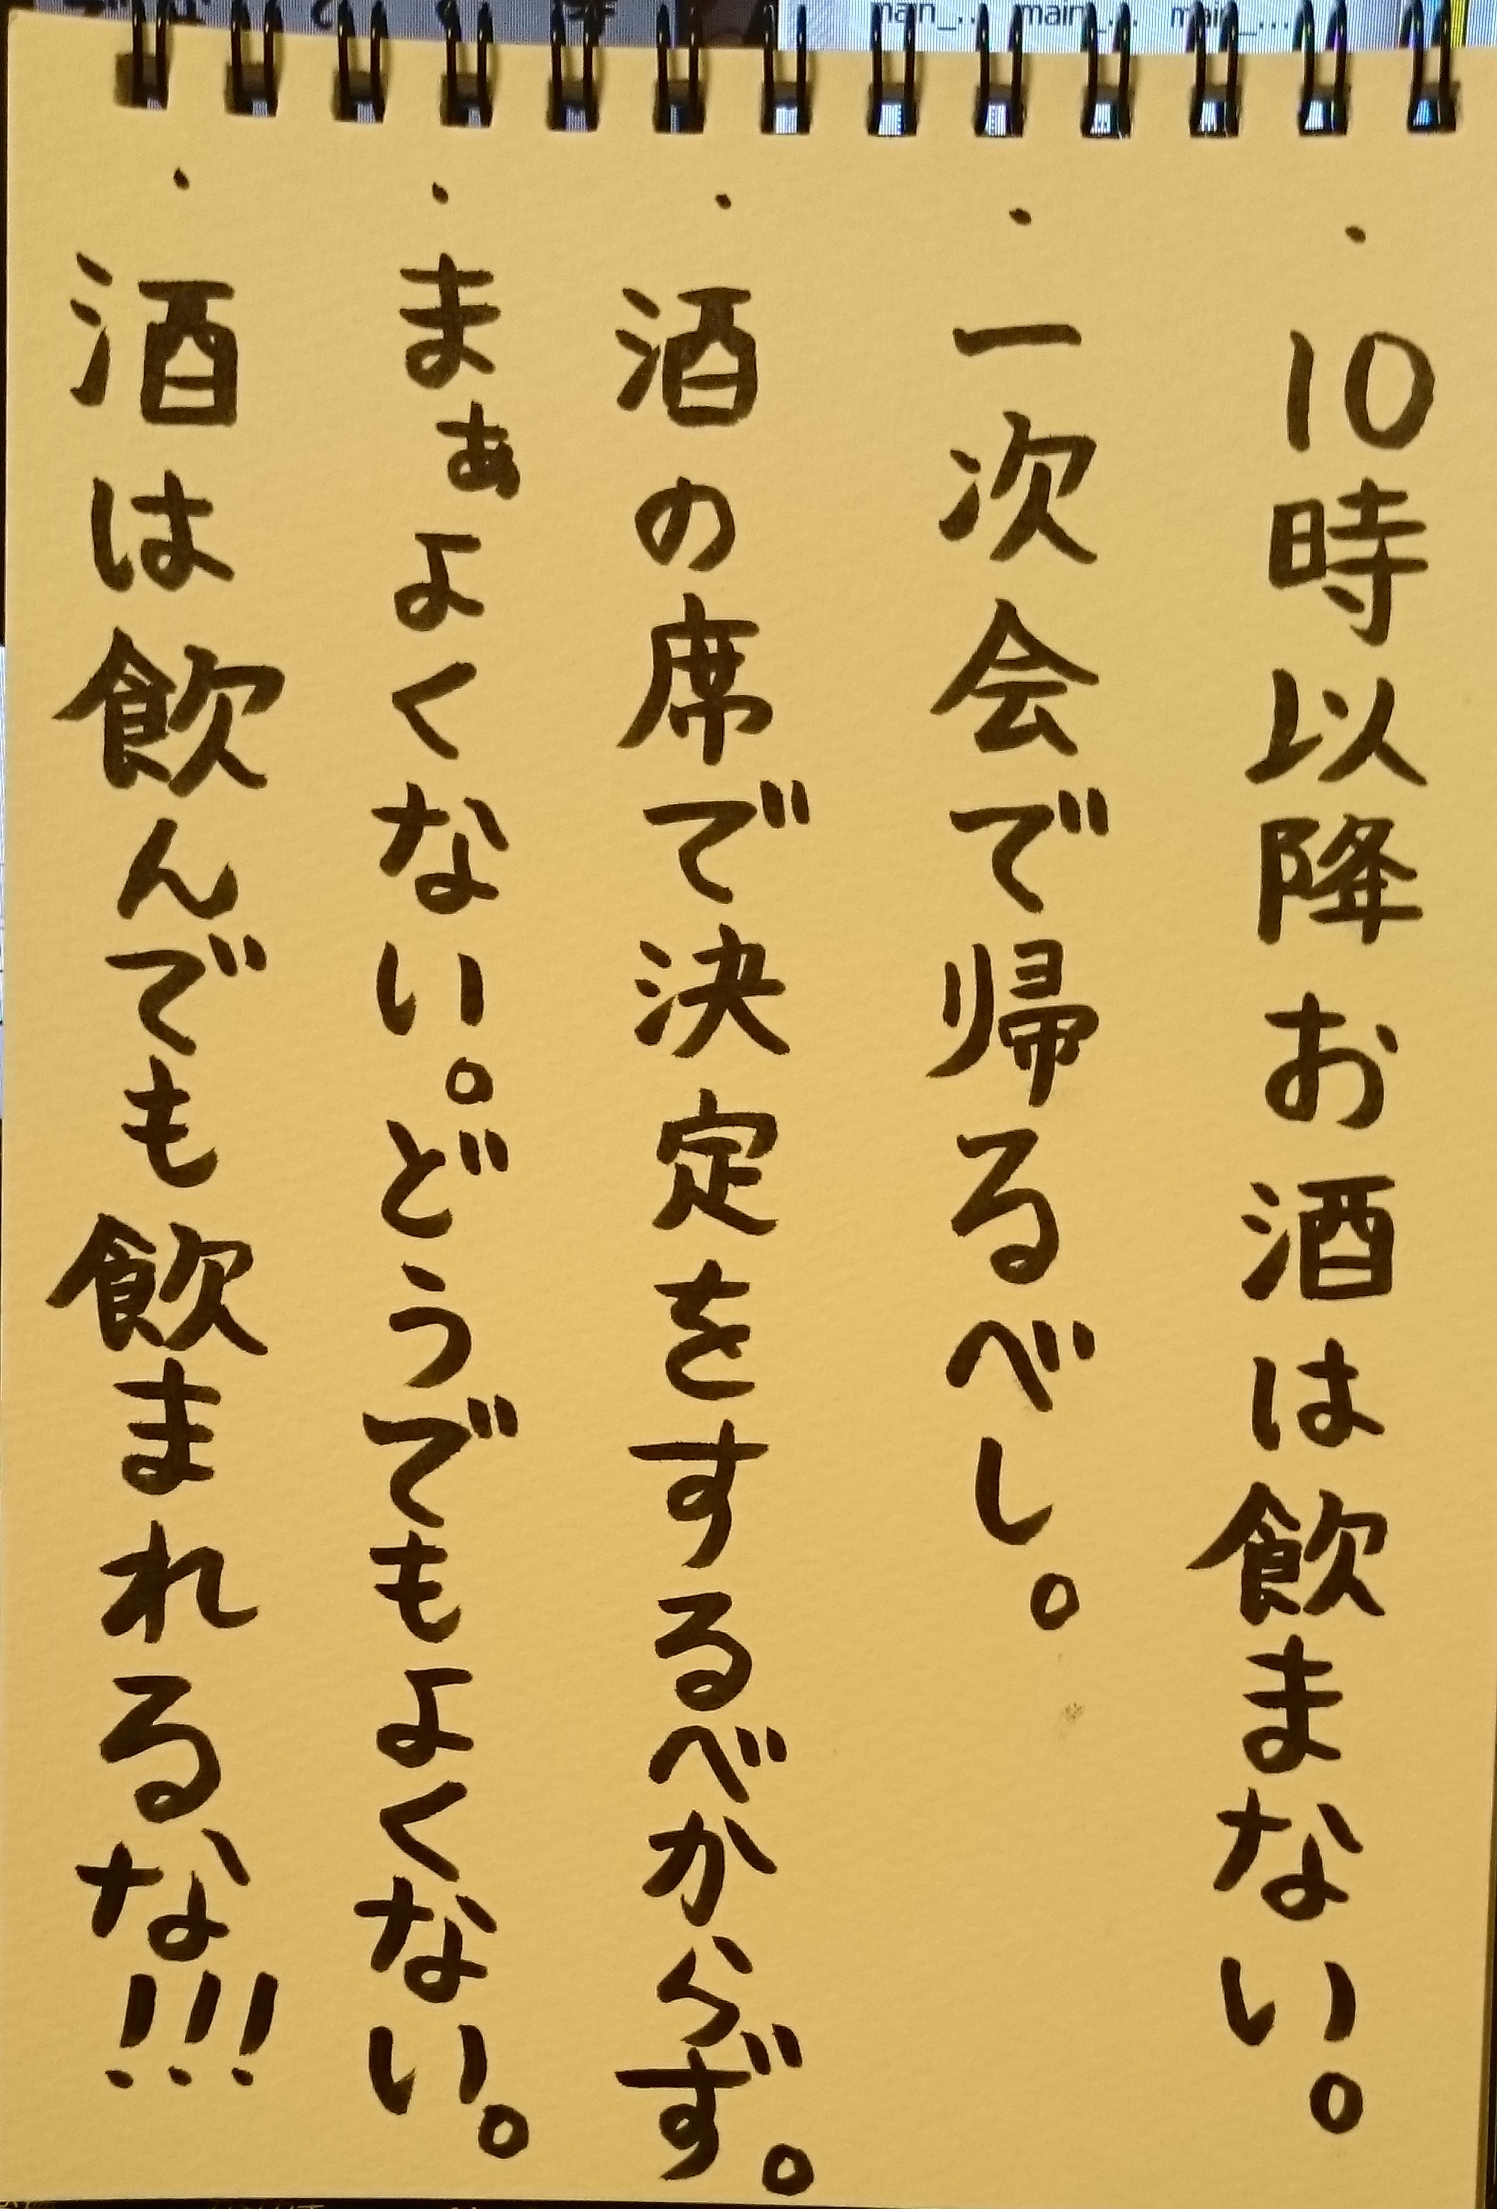 ・10時以降お酒は飲まない。
・一次会で帰るべし。
・酒の席で決定をするべからず。
・まぁよくない。どうでもよくない。
・酒は飲んでも飲まれるな!!!
main_... main_... main_...